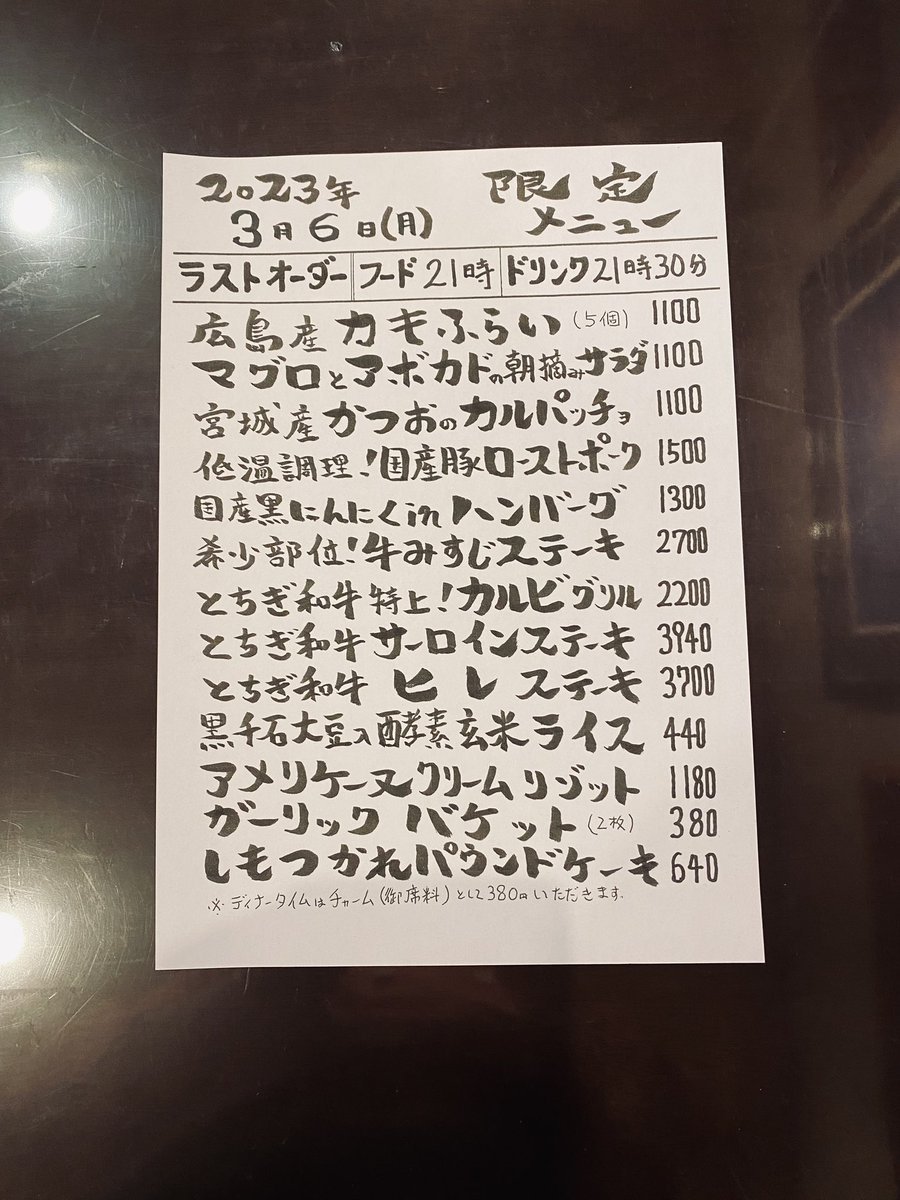 2023年 限定
3月6日(月) メニュー
ラストオーダー フード21時 ドリンク21時30分
広島産カキふらい(5個) 1100
マグロとアボカドの朝摘みサラダ 1100
宮城産かつおのカルパッチョ 1100
低温調理!国産豚ローストポーク 1500
国産黒にんにくinハンバーグ 1300
希少部位!牛みすじステーキ 2700
とちぎ和牛特上!カルビグリル 2200
とちぎ和牛サーロインステーキ 3940
とちぎ和牛ヒレステーキ 3700
黒千石大豆入酵素玄米ライス 440
アメリケーヌクリームリゾット 1180
ガーリックバケット(2枚) 380
しもつかれパウンドケーキ 640
※ディナータイムはチャーム(御席料)として380円いただきます。